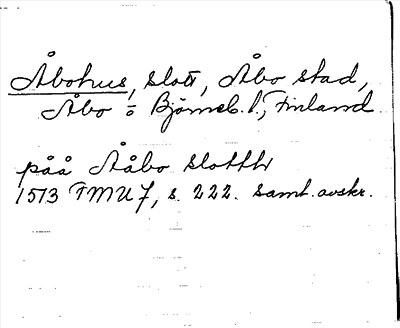 Åbohus, slott, Åbo stad,
Åbo o Björneb. l., Finland
påå Ååbo slotthr
1513 FMU 7, s. 222. samt. avskr.